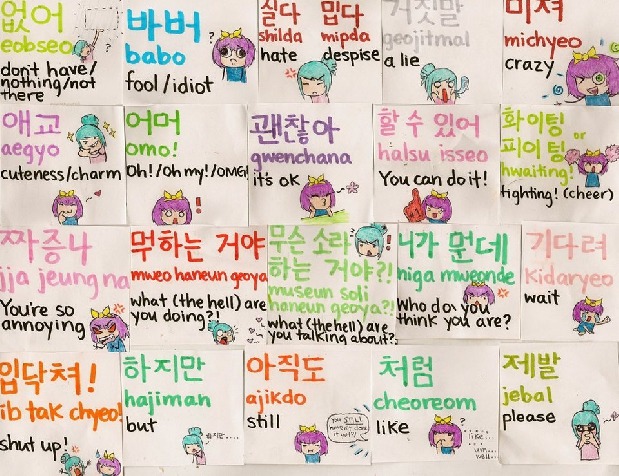 없어
eobseo
don't have/
nothing/not
there
바버
babo
fool/idiot
싫다 밉다
shilda mipda
hate despise
거짓말
geojitmal
a lie
미쳐
michyeo
crazy
애교
aegyo
cuteness/charm
어머
omo!
Oh!/Oh my!/OMG!
괜찮아
gwenchana
it's ok
할 수 있어
halsu isseo
You can do it!
화이팅 or
파이팅
hwaiting!
fighting! (cheer)
짜증나
jja jeung na
You're so
annoying
뭐하는 거야
mweo haneun geoya
what (the hell) are
you doing?!
무슨 소리
하는 거야?!
museun soli
haneun geoya?!
what (the hell) are
you talking about?
니가 뭔데
niga mweonde
Who do you
think you are?
기다려
Kidaryeo
wait
입닥쳐!
ib tak chyeo!
shut up!
하지만
hajiman
but
하지만....
아직도
ajikdo
still
you STILL
haven't done
it yet?!
처럼
cheoreom
like
like...
um...
well..
제발
jebal
please